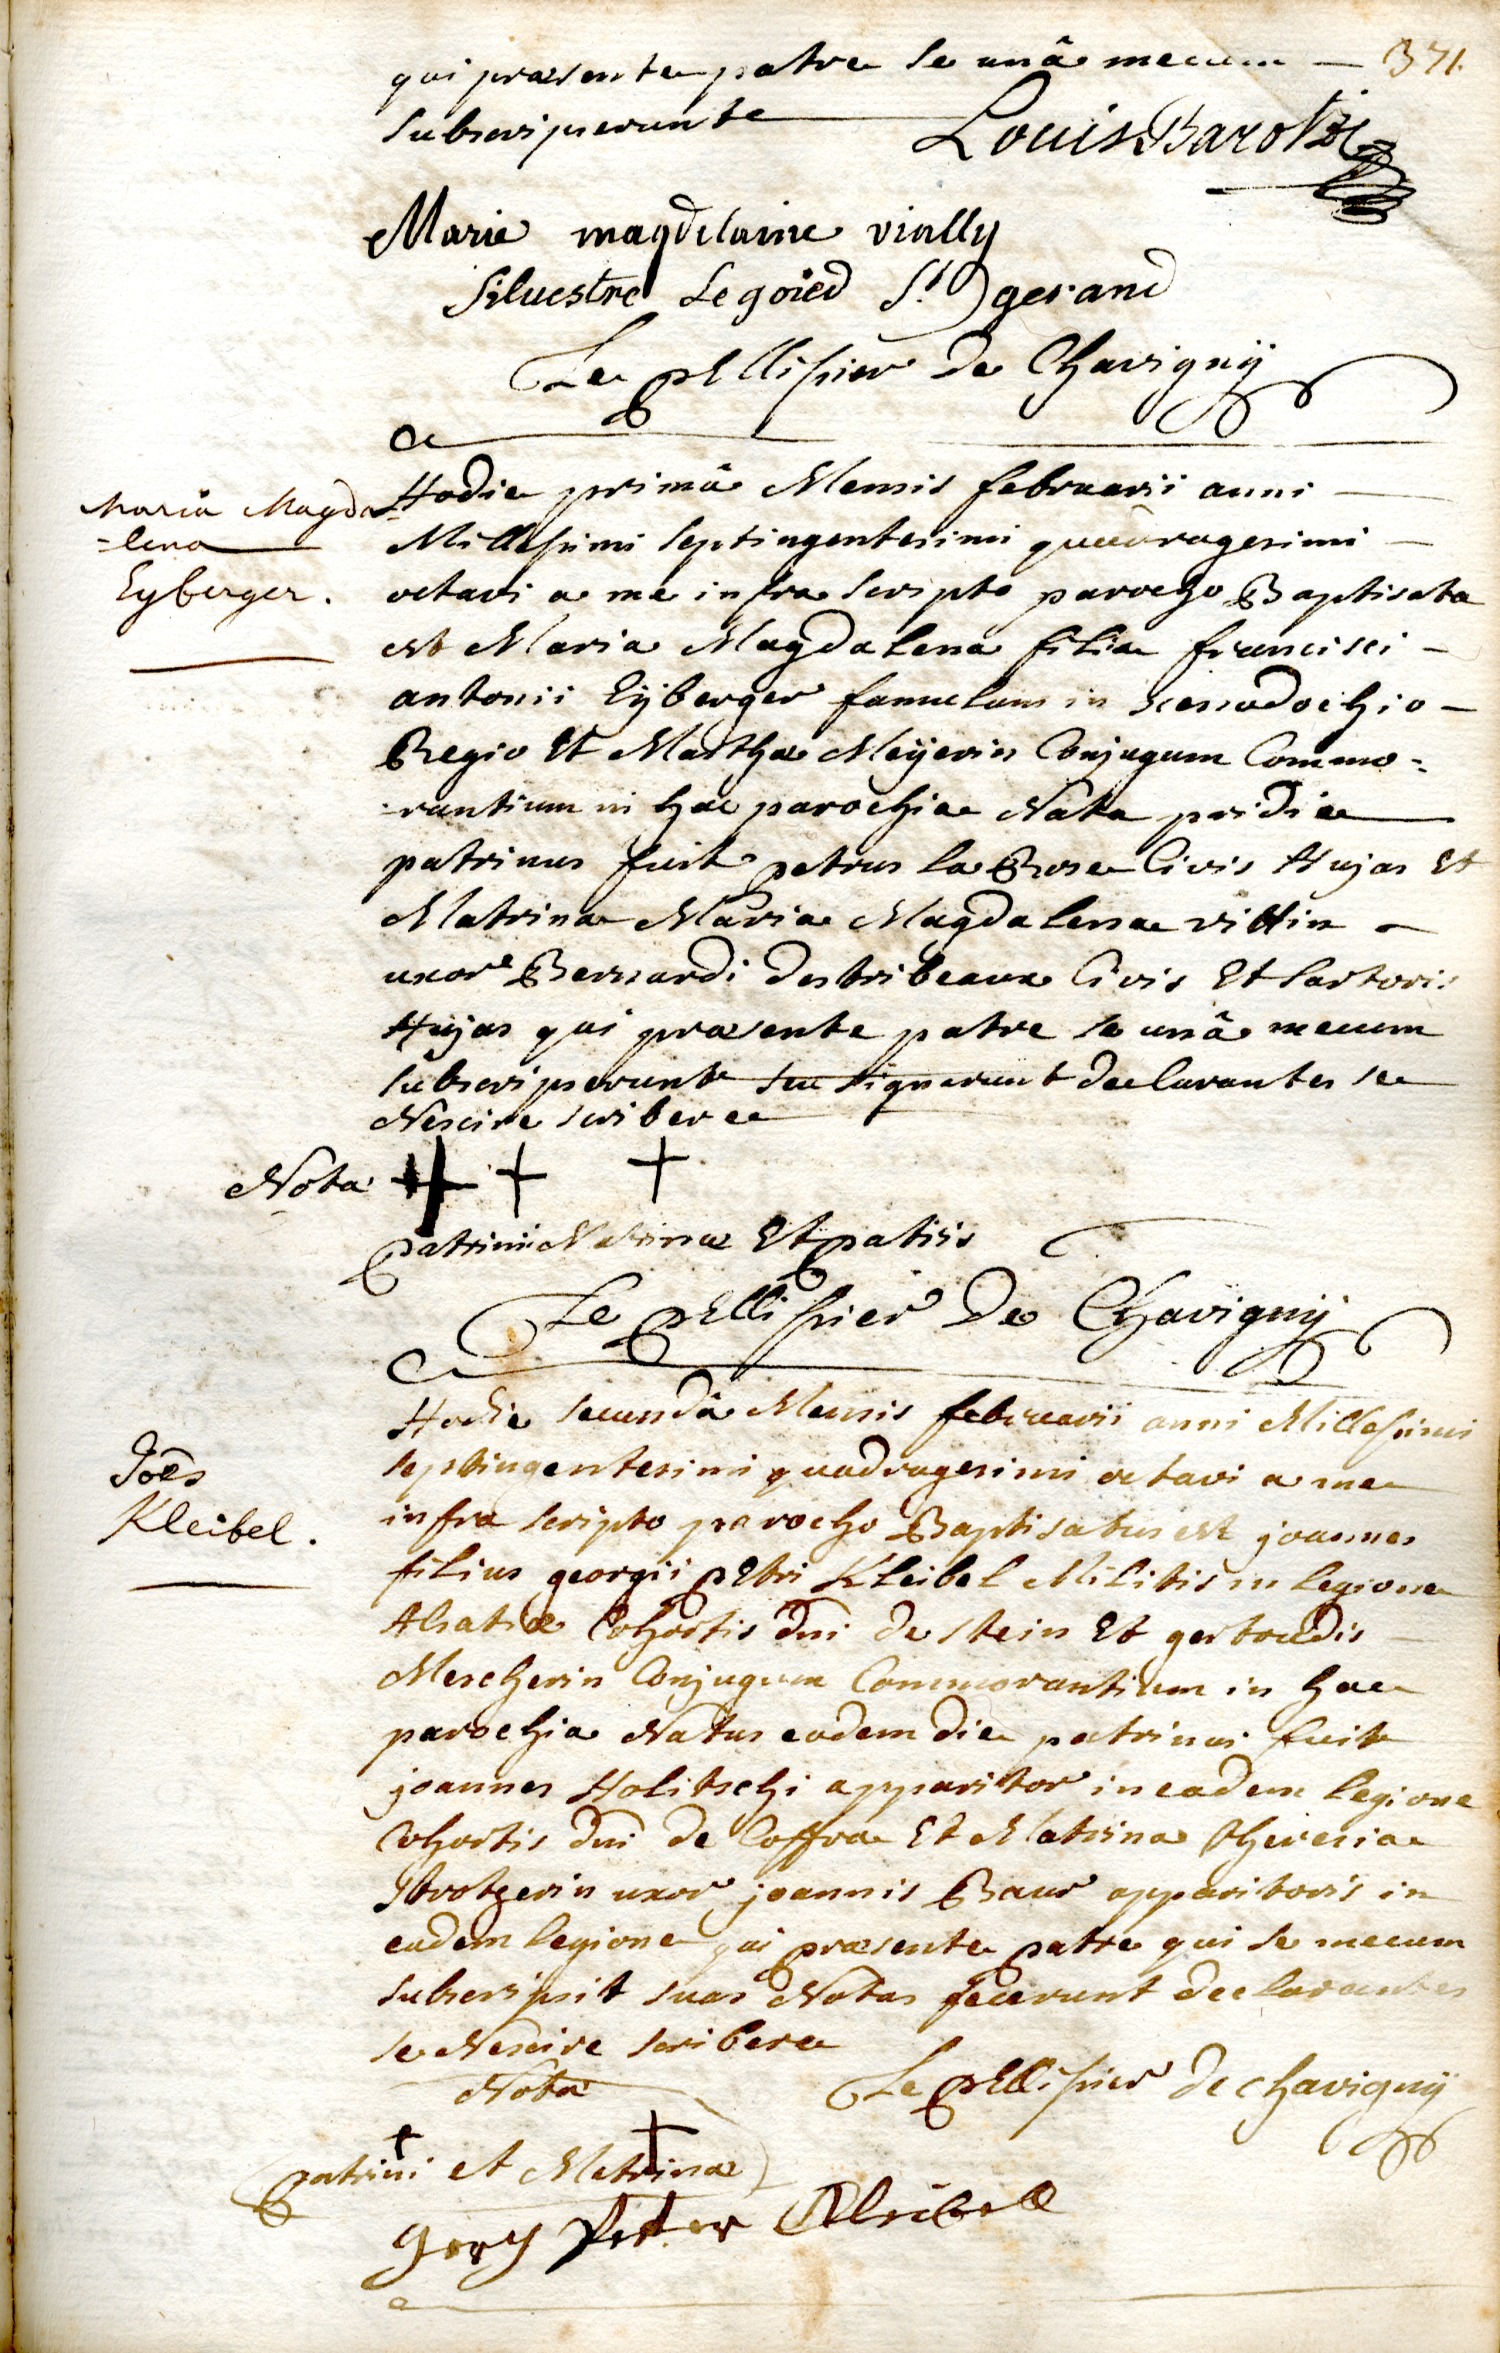 371.
qui præsente patre se unâ mecum —
subscripserunt
Louis Barotte
Marie magdelaine vially
Siluestre Legoied St gerand
Le pellissier de Chavignÿ
Maria Magda
=lena
Eyberger.
Hodie primâ Mensis februarii anni —
Millessimi septingentesimi quadragesimi —
octavi a me infra scripto parocho Baptisata
est Maria Magdalena filia francisci —
antonii Eÿberger famulans in xenodochio —
Regio Et Martha Meÿerin Conjugum Commo=
-rantium in hac parochia Nata pridie
patrinus fuit petrus la Rose Civis Hujas Et
Matrina Maria Magdalena vittin —
uxor Bernardi Destribeaux Civis Et sartoris
Hujas qui præsente patre se unâ mecum
subscripserunt seu signerunt declarantes se
Nescire scribere
Nota + + +
patrini Matrinæ Et patris
Le pellissier De Chavignÿ
Joes
Kleibel.
Hodie secundâ Mensis februarii anni Millessimi
septingentesimi quadragesimi octavi a me
infra scripto parocho Baptisatus est joannes
filius georgii pEtri Kleibel Militis in legione
Alsatiæ Cohortis dni de stein Et gertrudis —
Mescherin Conjugum Commorantium in hac
parochia Natus eadem die patrinus fuit
joannes Holitschi apparitor in eadem legione
Cohortis dni de Coffra Et Matrina theresia
Strotzerin uxor joannis Baur apparitoris in
eadem legione qui præsente patre qui se mecum
subscripsit suas Notas fecerunt declarantes
se Nescire scribere
Nota
Le pEllissier de chavignÿ
+ +
patrini et Matrinæ
Gorg Petter Kleibell